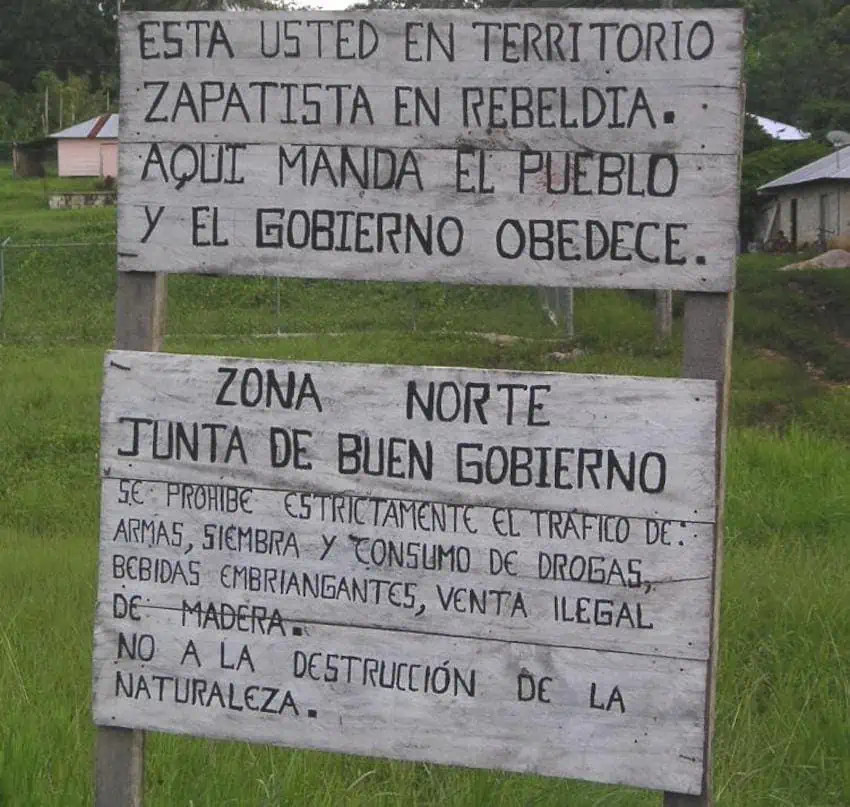 ESTA USTED EN TERRITORIO
ZAPATISTA EN REBELDIA.
AQUI MANDA EL PUEBLO
Y EL GOBIERNO OBEDECE.
ZONA NORTE
JUNTA DE BUEN GOBIERNO
SE PROHIBE ESTRICTAMENTE EL TRAFICO DE:
ARMAS, SIEMBRA Y CONSUMO DE DROGAS,
BEBIDAS EMBRIANGANTES, VENTA ILEGAL
DE MADERA.
NO A LA DESTRUCCIÓN DE LA
NATURALEZA.